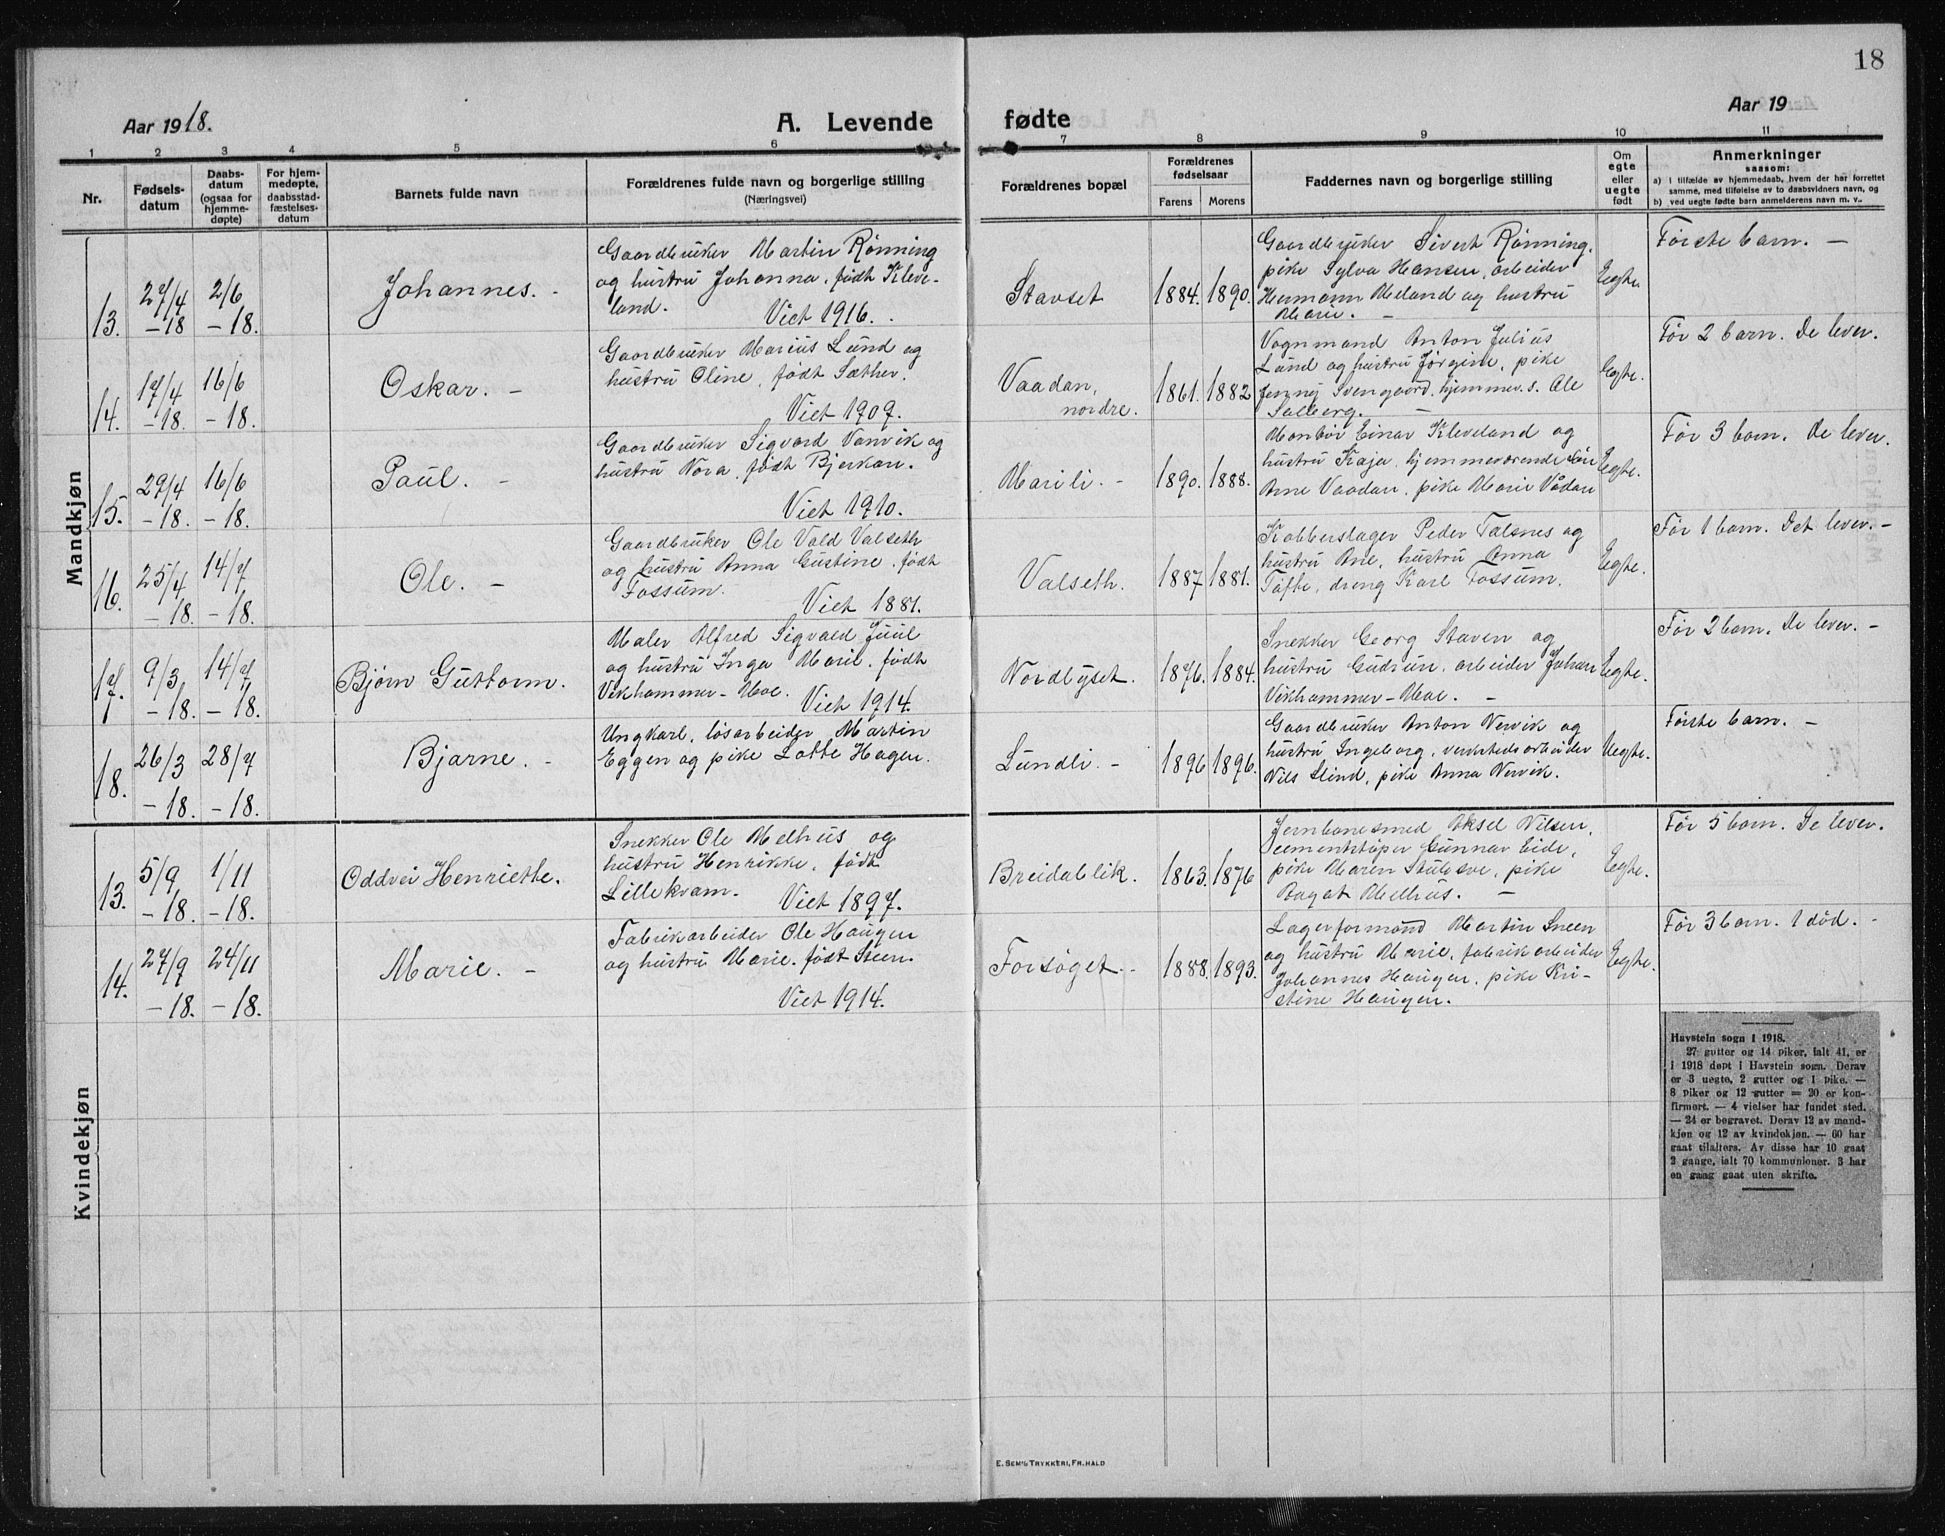 18
Aar 1918.
A. Levende
fødte
Aar 19
1 2 3 4 5 6 7 8 9 10 11
Nr.
Fødsels-
datum
Daabs-
datum
(ogsaa for
hjemme-
døpte)
For hjem-
medøpte,
daabsstad-
fæstelses-
datum
Barnets fulde navn
Forældrenes fulde navn og borgerlige stilling
(Næringsvei)
Forældrenes bopæl
Forældrenes
fødselsaar
Farens Morens
Faddernes navn og borgerlige stilling
Om
egte
eller
uegte
født
Anmerkninger
saasom:
a) i tilfælde av hjemmedaab, hvem der har forrettet
samme, med tilføielse av to daabsvidners navn, og
b) ved uegte fødte barn anmelderens navn m. v..
Mandkjøn
13.
27/4
-18
2/6
-18.
Johannes. -
Gaardbruker Martin Rønning
og hustru Johanna, født Kleve-
land.
Viet 1916.
Stavset
1884. 1890.
Gaardbruker Sivert Rønning,
pike Sylva Hansen, arbeider
Hermann Meland og hustru
Marie. -
Egte.
Første barn. -
14.
17/4
-18.
16/6
-18.
Oskar. -
Gaardbruker Marius Lund og
hustru Oline, født Sæther.
Viet 1909.
Vaadan,
nordre.
1861. 1882
Vognmand Anton Julius
Lund og hustru Jørgine, pike
Jenny Svengaard, hjemmev. s. Ole
Solberg. -
Egte.
Før 2 barn. De lever.
15.
29/4
-18.
16/6
-18.
Paul. -
Gaardbruker Sigvard Vanvik og
hustru Nora, født Bjerkan.
Viet 1910.
Marili. -
1890. 1888.
Montør Einar Kleveland og
hustru Kaja, hjemmeværende søn
Arne Vaadan, pike Marie Vådan
Egte.
Før 3 barn. De lever.
16.
25/4
-18.
14/7
-18.
Ole. -
Gaardbruker Ole Vold Valseth
og hustru Anna Gustine, født
Fossum.
Viet 1881.
Valseth.
1887 1881.
Kobberslager Peder Talsnes og
hustru Ane, hustru Anna
Tofte, dreng Karl Fossum.
Egte.
Før 1 barn. Det lever. -
17
9/3
-18.
14/7
-18.
Bjørn Guttorm.
Maler Alfred Sigvald Juul
og hustru Inga Marie, født
Vikhammer-Moe.
Viet 1914.
Nordlyset.
1876. 1884.
Snekker Georg Staven og
hustru Gudrun, arbeider Johan
Vikhammer-Moe. -
Egte.
Før 2 barn. De lever. -
18.
26/3
-18.
28/7
-18.
Bjarne. -
Ungkarl, løsarbeider Martin
Eggen og pike Lotte Hagen.
Lundli. -
1896 1896.
Gaardbruker Anton Nervik og
hustru Ingeborg, verkstedsarbeider
Nils Slind, pike Anna Nervik.
Uegte.
Første barn. -
Kvindekjøn
13.
5/9
-18.
1/11
-18.
Oddvei Henriette.
Snekker Ole Melhus og
hustru Henrikke, født
Lillekvam.
Viet 1897.
Breidablik.
1863. 1876
Jernbanesmed Aksel Nilsen,
cementstøper Gunnar Eide,
pike Maren pike
Melhus. -
Egte.
Før 5 barn. De lever.
14.
27/9
-18.
24/11
-18.
Marie. -
Fabrikarbeider Ole Haugen
og hustru Marie, født Steen.
Viet 1914.
Forsøget. -
1888. 1893.
Lagerformand Martin Sneen
og hustru Marie, fabrikarbeider
Johannes Haugen, pike Kri-
stine Haugen.
Egte.
Før 3 barn. 1 død. -
Havstein sogn i 1918.
27 gutter og 14 piker, ialt 41, er
i 1918 døpt i Havstein sogn. Derav
er 3 uegte, 2 gutter og 1 pike. —
8 piker og 12 gutter = 20 er kon-
firmert. — 4 vielser har fundet sted.
— 24 er begravet. Derav 12 av mand-
kjøn og 12 av kvindekjøn. — 60 har
gaat tilalters. Av disse har 10 gaat
2 gange, ialt 70 kommunioner. 3 har
en gang gaat uten skrifte.
E. SEM'S TRYKKERI, FR.HALD